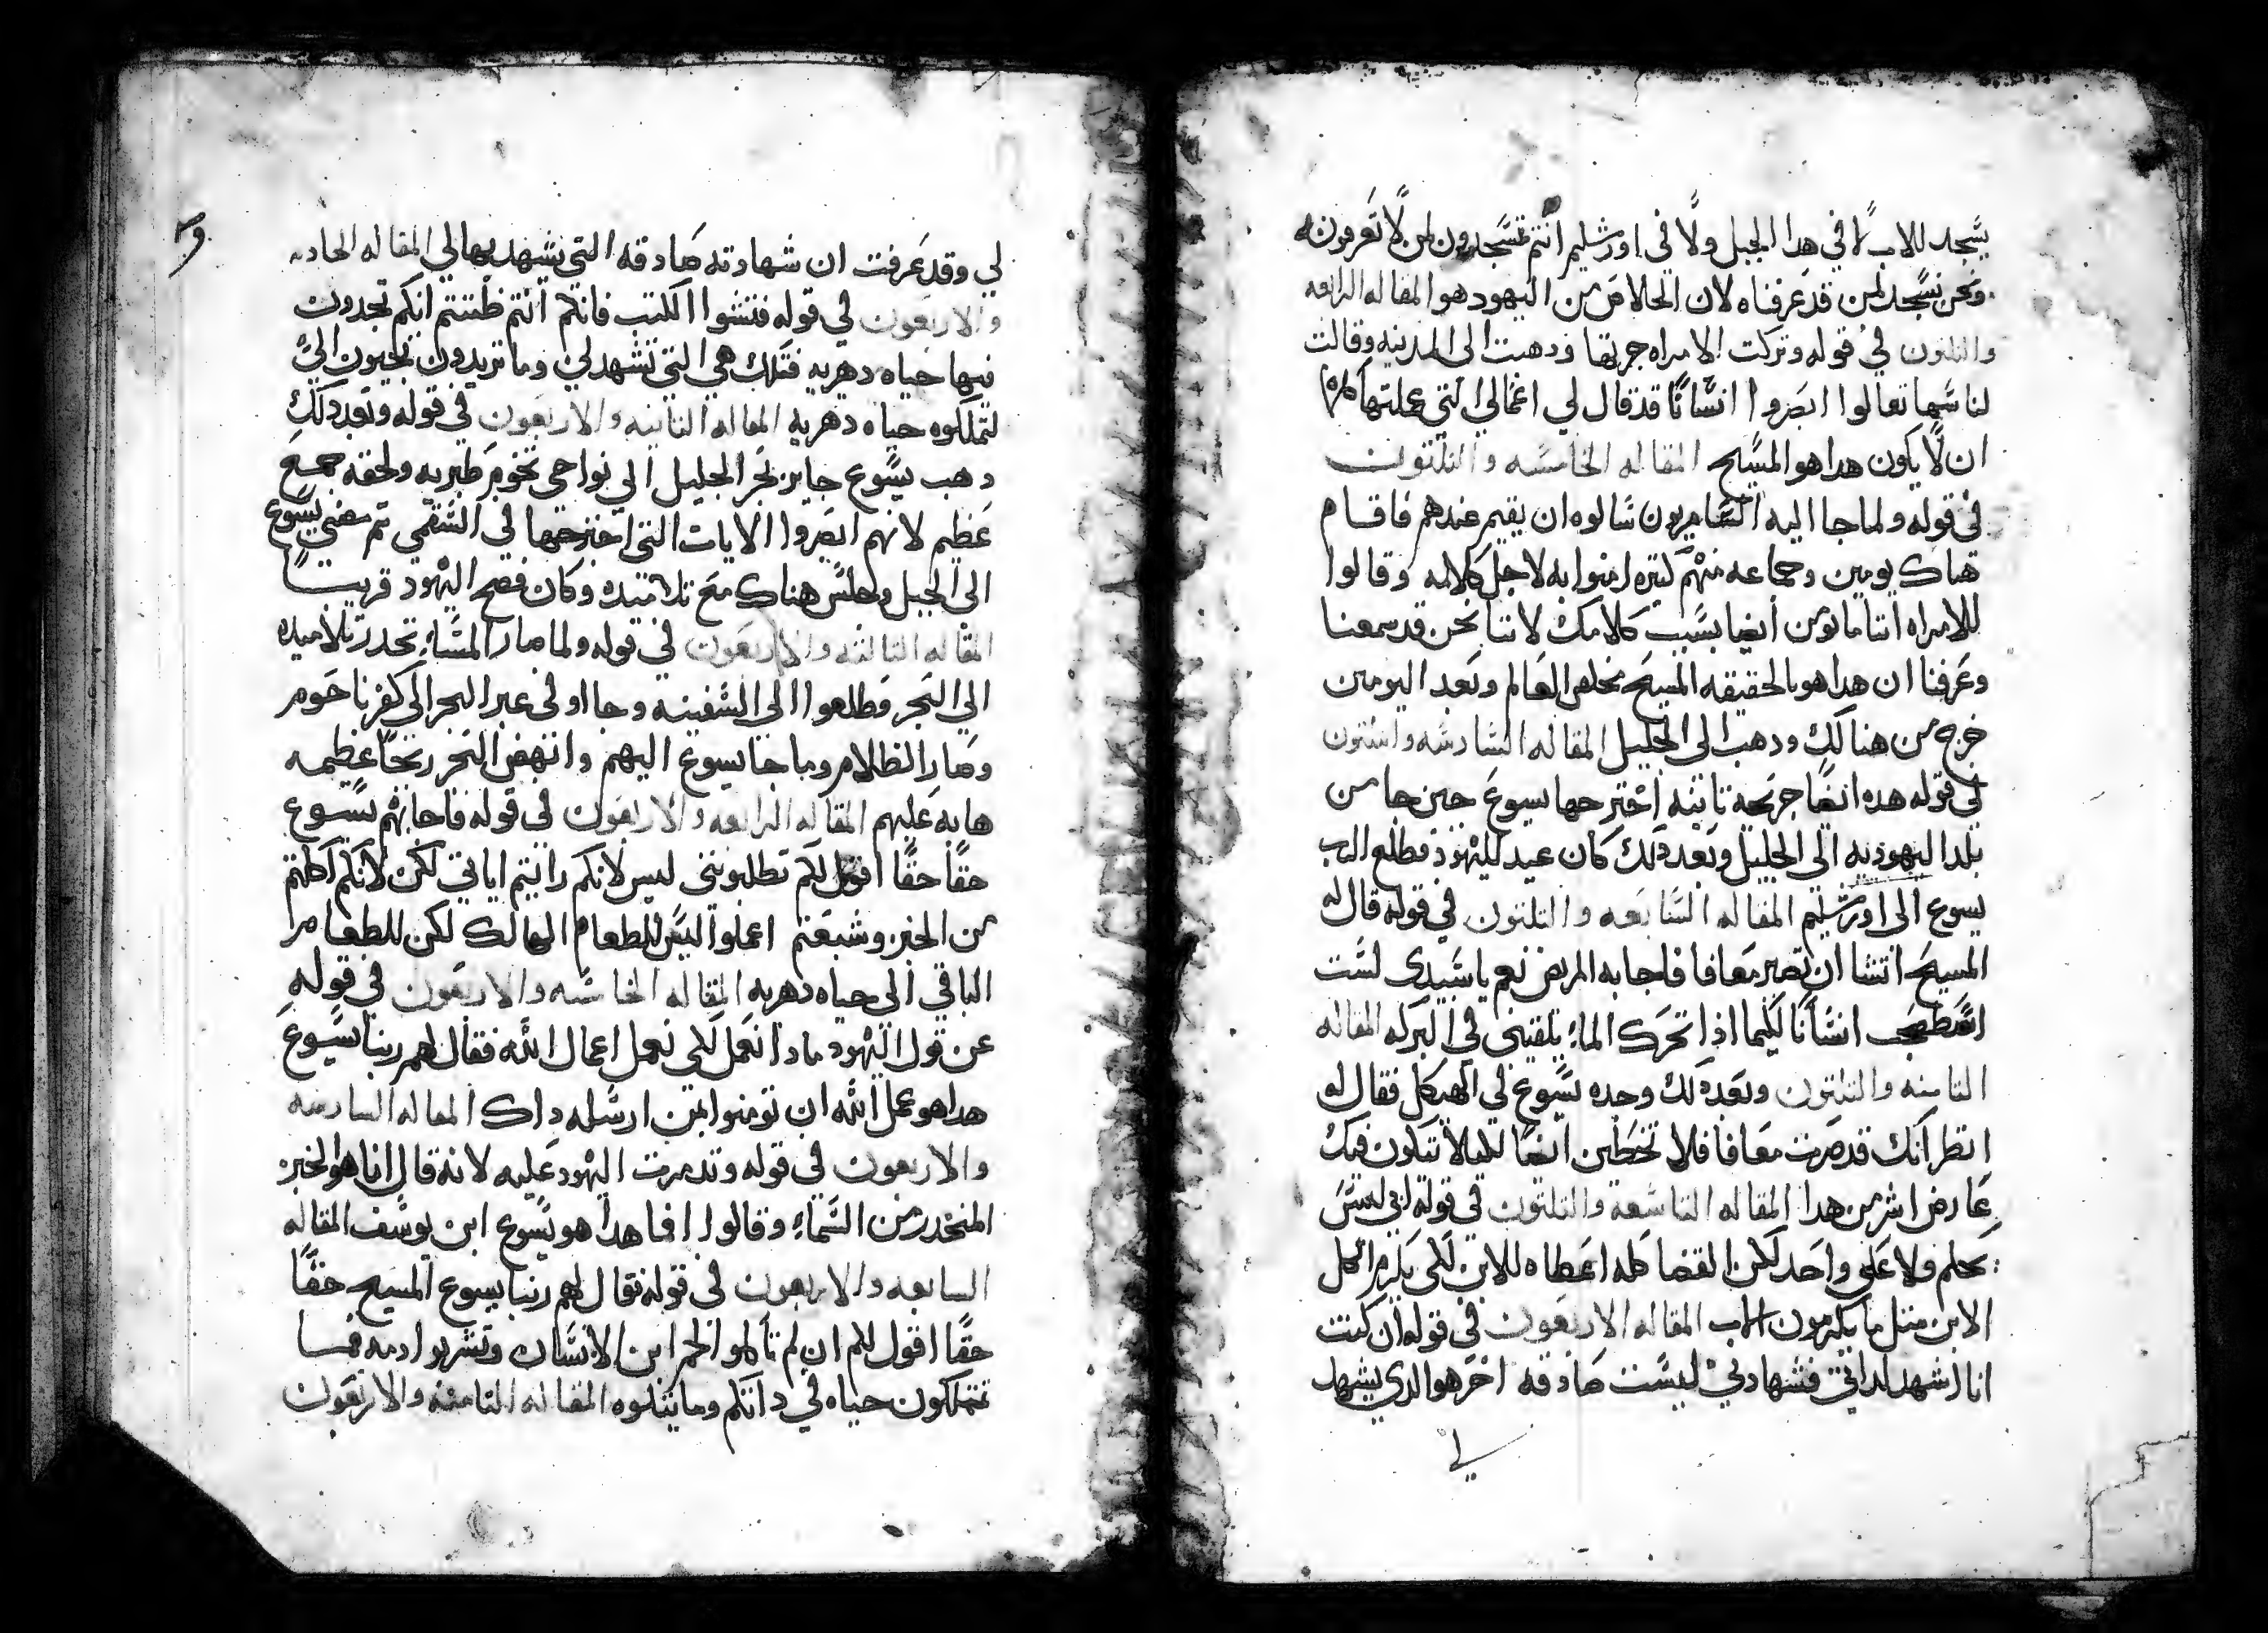 يسجد للاب لا في هدا الجبل ولا في اورشليم انتم تسجدون لمن لا تعرفونه
ونحن نسجد لمن قد عرفناه لان الخلاص من اليهود هو المقاله الرابعه
والتلتون في قوله وتركت الامراه جرتها ودهبت الى المدينه وقالت
لناسها تعالوا ابصروا انسانا قد قال لي اعمالي التي عملتها كلها
ان لا يكون هدا هو المسيح المقاله الخامسه والتلتون
في قوله ولما جا اليه السامريون سالوه ان يقيم عندهم فاقام
هناك يومين وجماعه منهم كتيره امنوا به لاجل كلامه وقالوا
للامراه اننا ما نومن ايضا بسبب كلامك لاننا نحن قد سمعنا
وعرفنا ان هدا هو بالحقيقه المسيح مخلص العالم وبعد اليومين
خرج من هنالك ودهب الى الجليل المقاله السادسه والتلتون
في قوله هده ايضا جريحه تانيه اجترحها يسوع حين جا من
بلد اليهوديه الى الجليل وبعد دلك كان عيد لليهود فطلع الرب
يسوع الى اورشليم المقاله السابعه والتلتون في قوله قال له
المسيح اتشا ان تصير معافا فاجابه المريض نعم يا سيدي لست
اسطحب انسانا لكيما اذا تحرك الماء يلقيني في البركه المقاله
التامنه والتلتون وبعد دلك وجده يسوع في الهيكل فقال له
انظر انك قد صرت معافا فلا تخطين ايضا لكيلا يتكون فيك
عارض اشر من هدا المقاله التاسعه والتلتون في قوله ابي ليس
يحكم ولا على واحد لكن القضا كله اعطاه للابن لكي يكرم الكل
الابن متل ما يكرمون الاب المقاله الاربعون في قوله ان كنت
انا اشهد لداتي فشهادتي ليست صادقه اخر هو الدي يشهد
لي
لي وقد عرفت ان شهادته صادقه التي يشهد بها لي المقاله الحاديه
والاربعون في قوله فتشوا الكتب فانكم انتم ظننتم انكم تجدون
فيها حياه دهريه فتلك هي التي تشهد لي وما تريدون تجيون الي
لتملكوه حياه دهريه المقاله التانيه والاربعون في قوله وبعد دلك
دهب يسوع جايز بحر الجليل الي نواحي تخوم طبريه ولحقه جمع
عظيم لانهم ابصروا الايات التي اجترحها في السقمي تم مضي يسوع
الي الجبل وجلس هناك مع تلاميده وكان فصح اليهود قريبا
المقاله التالته والاربعون في قوله ولما صار المساء تحدر تلاميده
الي البحر فطلعوا الي السفينه وجااو في عبر البحر الي كفرناحوم
وصار الظلام وما جا يسوع اليهم وانتهض البحر ريحا عظيمه
هابه عليهم المقاله الرابعه والاربعون في قوله فاجابهم يسوع
حقا حقا اقول لكم تطلبونني ليس لانكم رايتم اياتي لكن لانكم اكلتم
من الخبز وشبعتم اعملوا ليس للطعام الهالك لكن للطعام
الباقي الى حياه دهريه المقاله الخامسه والاربعون في قوله
عن قول اليهود مادا نعمل لكي نعمل اعمال الله فقال لهم ربنا يسوع
هدا هو عمل الله ان تومنوا بمن ارسله داك المقاله السادسه
والاربعون في قوله وتدمرت اليهود عليه لانه قال انا هو الخبز
المنحدر من السماء وقالوا افما هدا هو يسوع ابن يوسف المقاله
السابعه والاربعون في قوله فقال لهم ربنا يسوع المسيح حقا
حقا اقول لكم ان لم تاكلوا لحم ابن الانسان وتشربوا دمه فما
تمتلكون حياه في داتكم وما يتلوه المقاله التامنه والاربعون